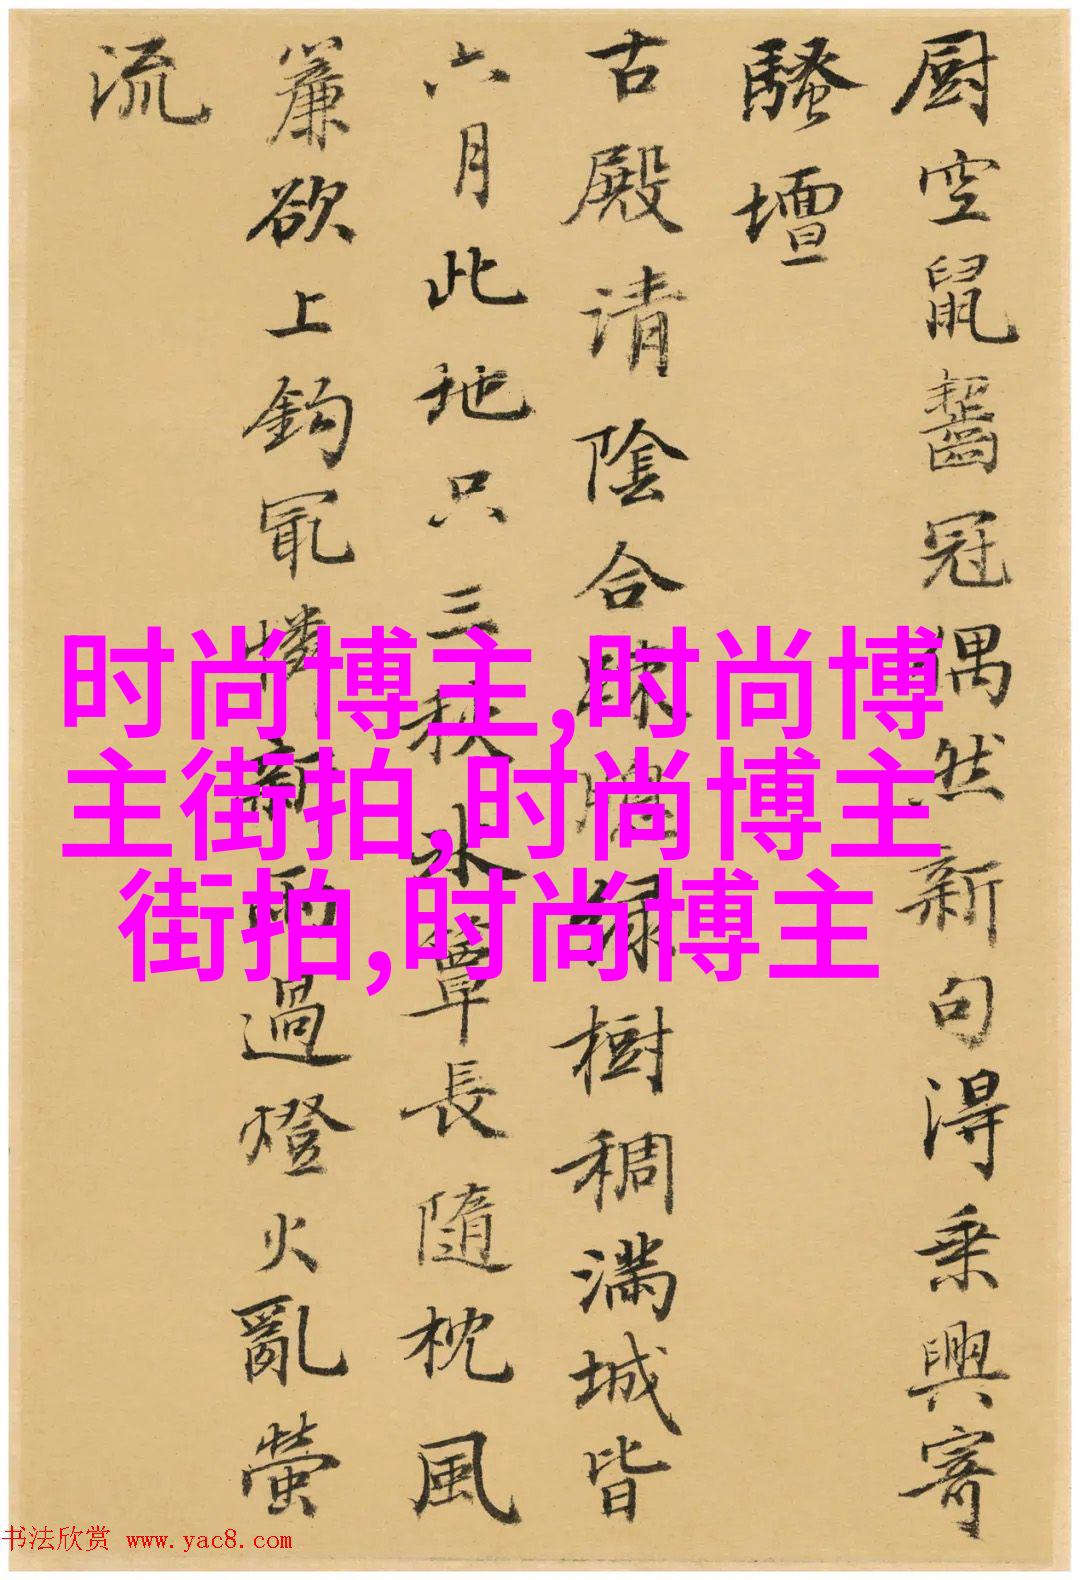 厨空鼠齧冠偶然新句得乘興寄
騷壇
古殿清陰合踈牕緑樹稠滿城皆
六月此地只三秋水簟長隨枕風
簾欲上鈎冣憐新雨過燈火亂螢
流
时尚博主,时尚博
主街拍,时尚博主
街拍,时尚博主
书法欣赏 www.yac8.com